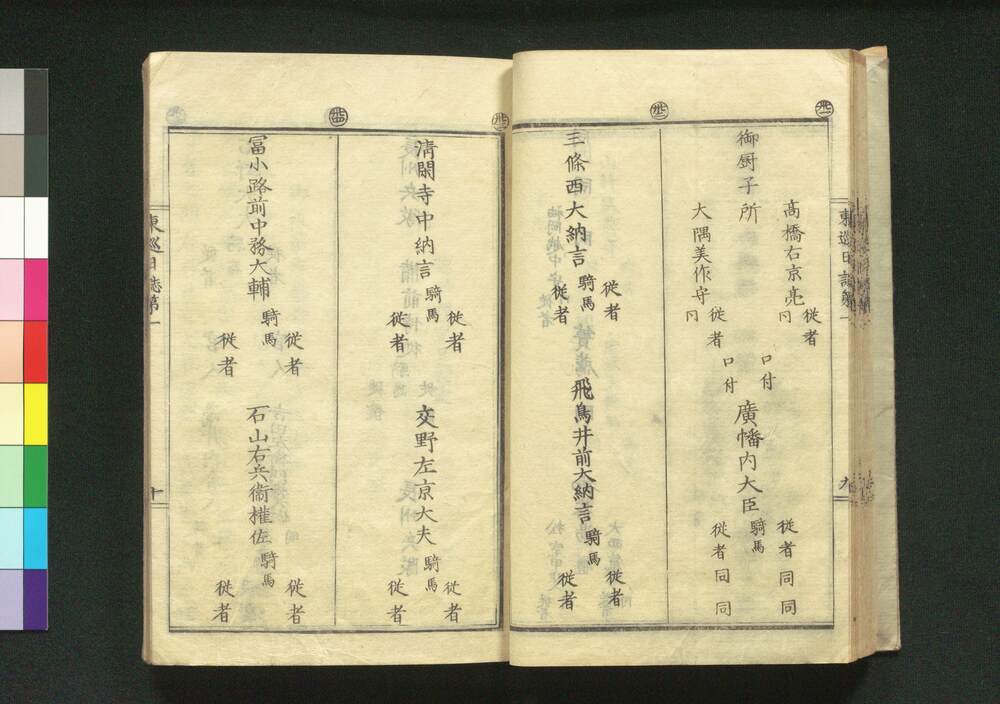 東巡日誌第一
九
高橋右京亮
従者
同
御厨子所
大隅美作守
従者
同
口付
口付
廣幡内大臣
騎馬
従者同同
従者同同
三條西大納言
騎馬
従者
従者
飛鳥井前大納言
騎馬
従者
従者
清閑寺中納言
騎馬
従者
従者
交野左京大夫
騎馬
従者
従者
冨小路前中務大輔
騎馬
従者
従者
石山右兵衛権佐
騎馬
従者
従者
東巡日誌第一
十